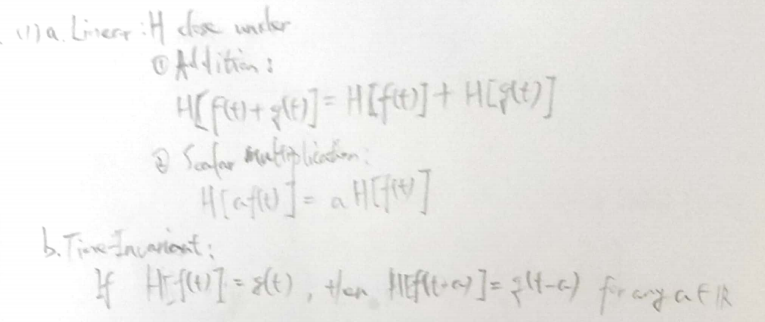 (1) a. Linear: H close under
① Addition:
H[f(t)+g(t)] = H[f(t)] + H[g(t)]
② Scalar multiplication:
H[af(t)] = a H[f(t)]
b. Time-Invariant:
If H[f(t)] = g(t), then H[f(t-a)] = g(t-a) for any a ∈ ℝ